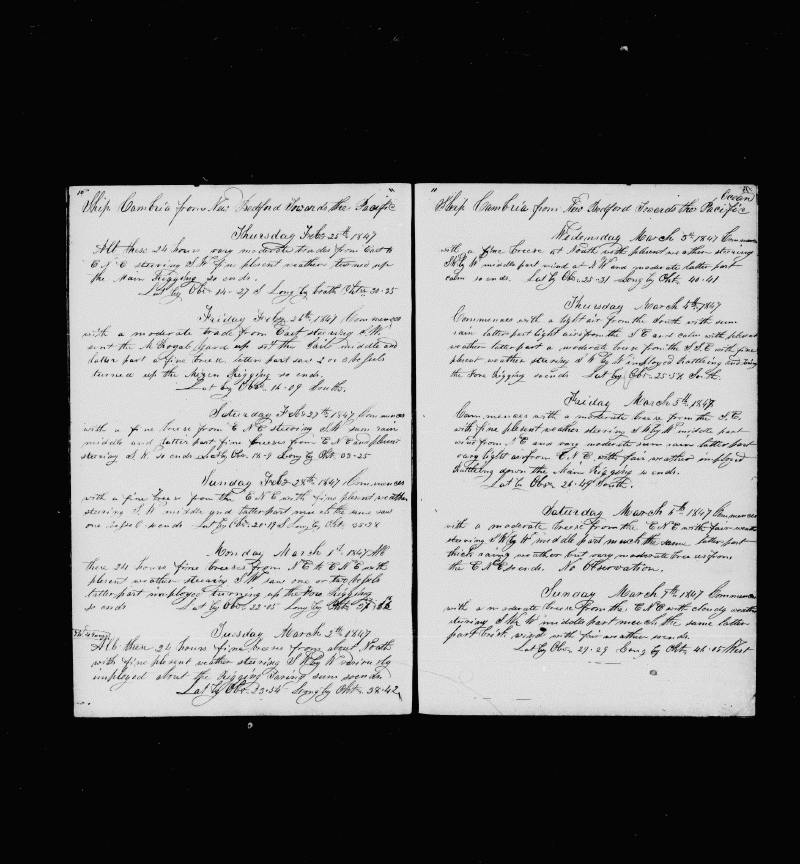 10
Ship Cambria from New Bedford Towards the Pacific
Thursday Feb 25th 1847
All these 24 hours very moderate trades from East to
E.N.E steering S.W fine plesent weather turned up
the Main Rigging so ends
Lat by Obr 14-27 S Long by
Friday Feb 26th 1847 Commences
with a moderate trade from East steering S.W
sent the M Royal up set the sail middle and
latter part a fine breese latter part saw 2 or 3 vessels
turned up the Mizen Rigging so ends.
Lat by Obr 16-09 South.
Saturday Feb 27th 1847 Commences
with a fine breese from E N E steering S.W sum rain
middle and latter part fine breeses from E N E and plesent
steering S.W so ends Lat by Obr 18-9 Long by Chr. 23-25
Sunday Feb 28th 1847 Commences
with a fine breese from the E N E with fine plesent weather
steering S.W middle and latter part much the same saw
one sail so ends Lat by Obr 20-19 S Long by Chr. 25-28
Monday March 1st 1847 All
these 24 hours fine breeses from N E to E N E with
plesent weather steering S.W saw one or two
latter part imployed turning up the Fore Rigging
so ends Lat by Obr. 22-05 Long by Chr. 27-
Tuesday March 2d 1847
All these 24 hours fine breeses from about North
with fine plesent weather steering S W by W variously
imployed about the Rigging sum so ends
Lat by Obr. 23-54 Long by Chr. 38-42
11
Ship Cambria from New Bedford Towards the Pacific
Ocean
Wednesday March 3d 1847 Commences
with a fine breese at North with plesent weather steering
S W by W middle part wind at S W and moderate latter part
calm so ends. Lat by Obr. 25-31 Long by Chr. 40-41
Thursday March 4th 1847
Commences with a light air from the South with sum
rain latter part light airs from the S E and calm with plesent
weather latter part a moderate breese from the S.S.E with fine
plesent weather steering S W by W imployed rattleing down
the Fore Rigging so ends Lat by Obr - 25-52 South.
Friday March 5th 1847
Commences with a moderate breese from the S.E.
with fine plesent weather steering S W by W middle part
wind from N E and vary moderate sum rain latter part
vary light airs from E N E with fair weather imployed
Rattleing down the Main Rigging so ends.
Lat by Obr. 26-49 South.
Saturday March 6th 1847 Commences
with a moderate breese from the E N E with fair weather
steering S W by W middle part much the same latter part
thick rainy weather but vary moderate breeses from
the E N E so ends. No Observation.
Sunday March 7th 1847 Commences
with a moderate breese from the E N E with cloudy weather
steering S W by W middle part much the same latter
part brisk wind with fair weather so ends.
Lat by Obr. 29-29 Long by Chr. 46-05 West